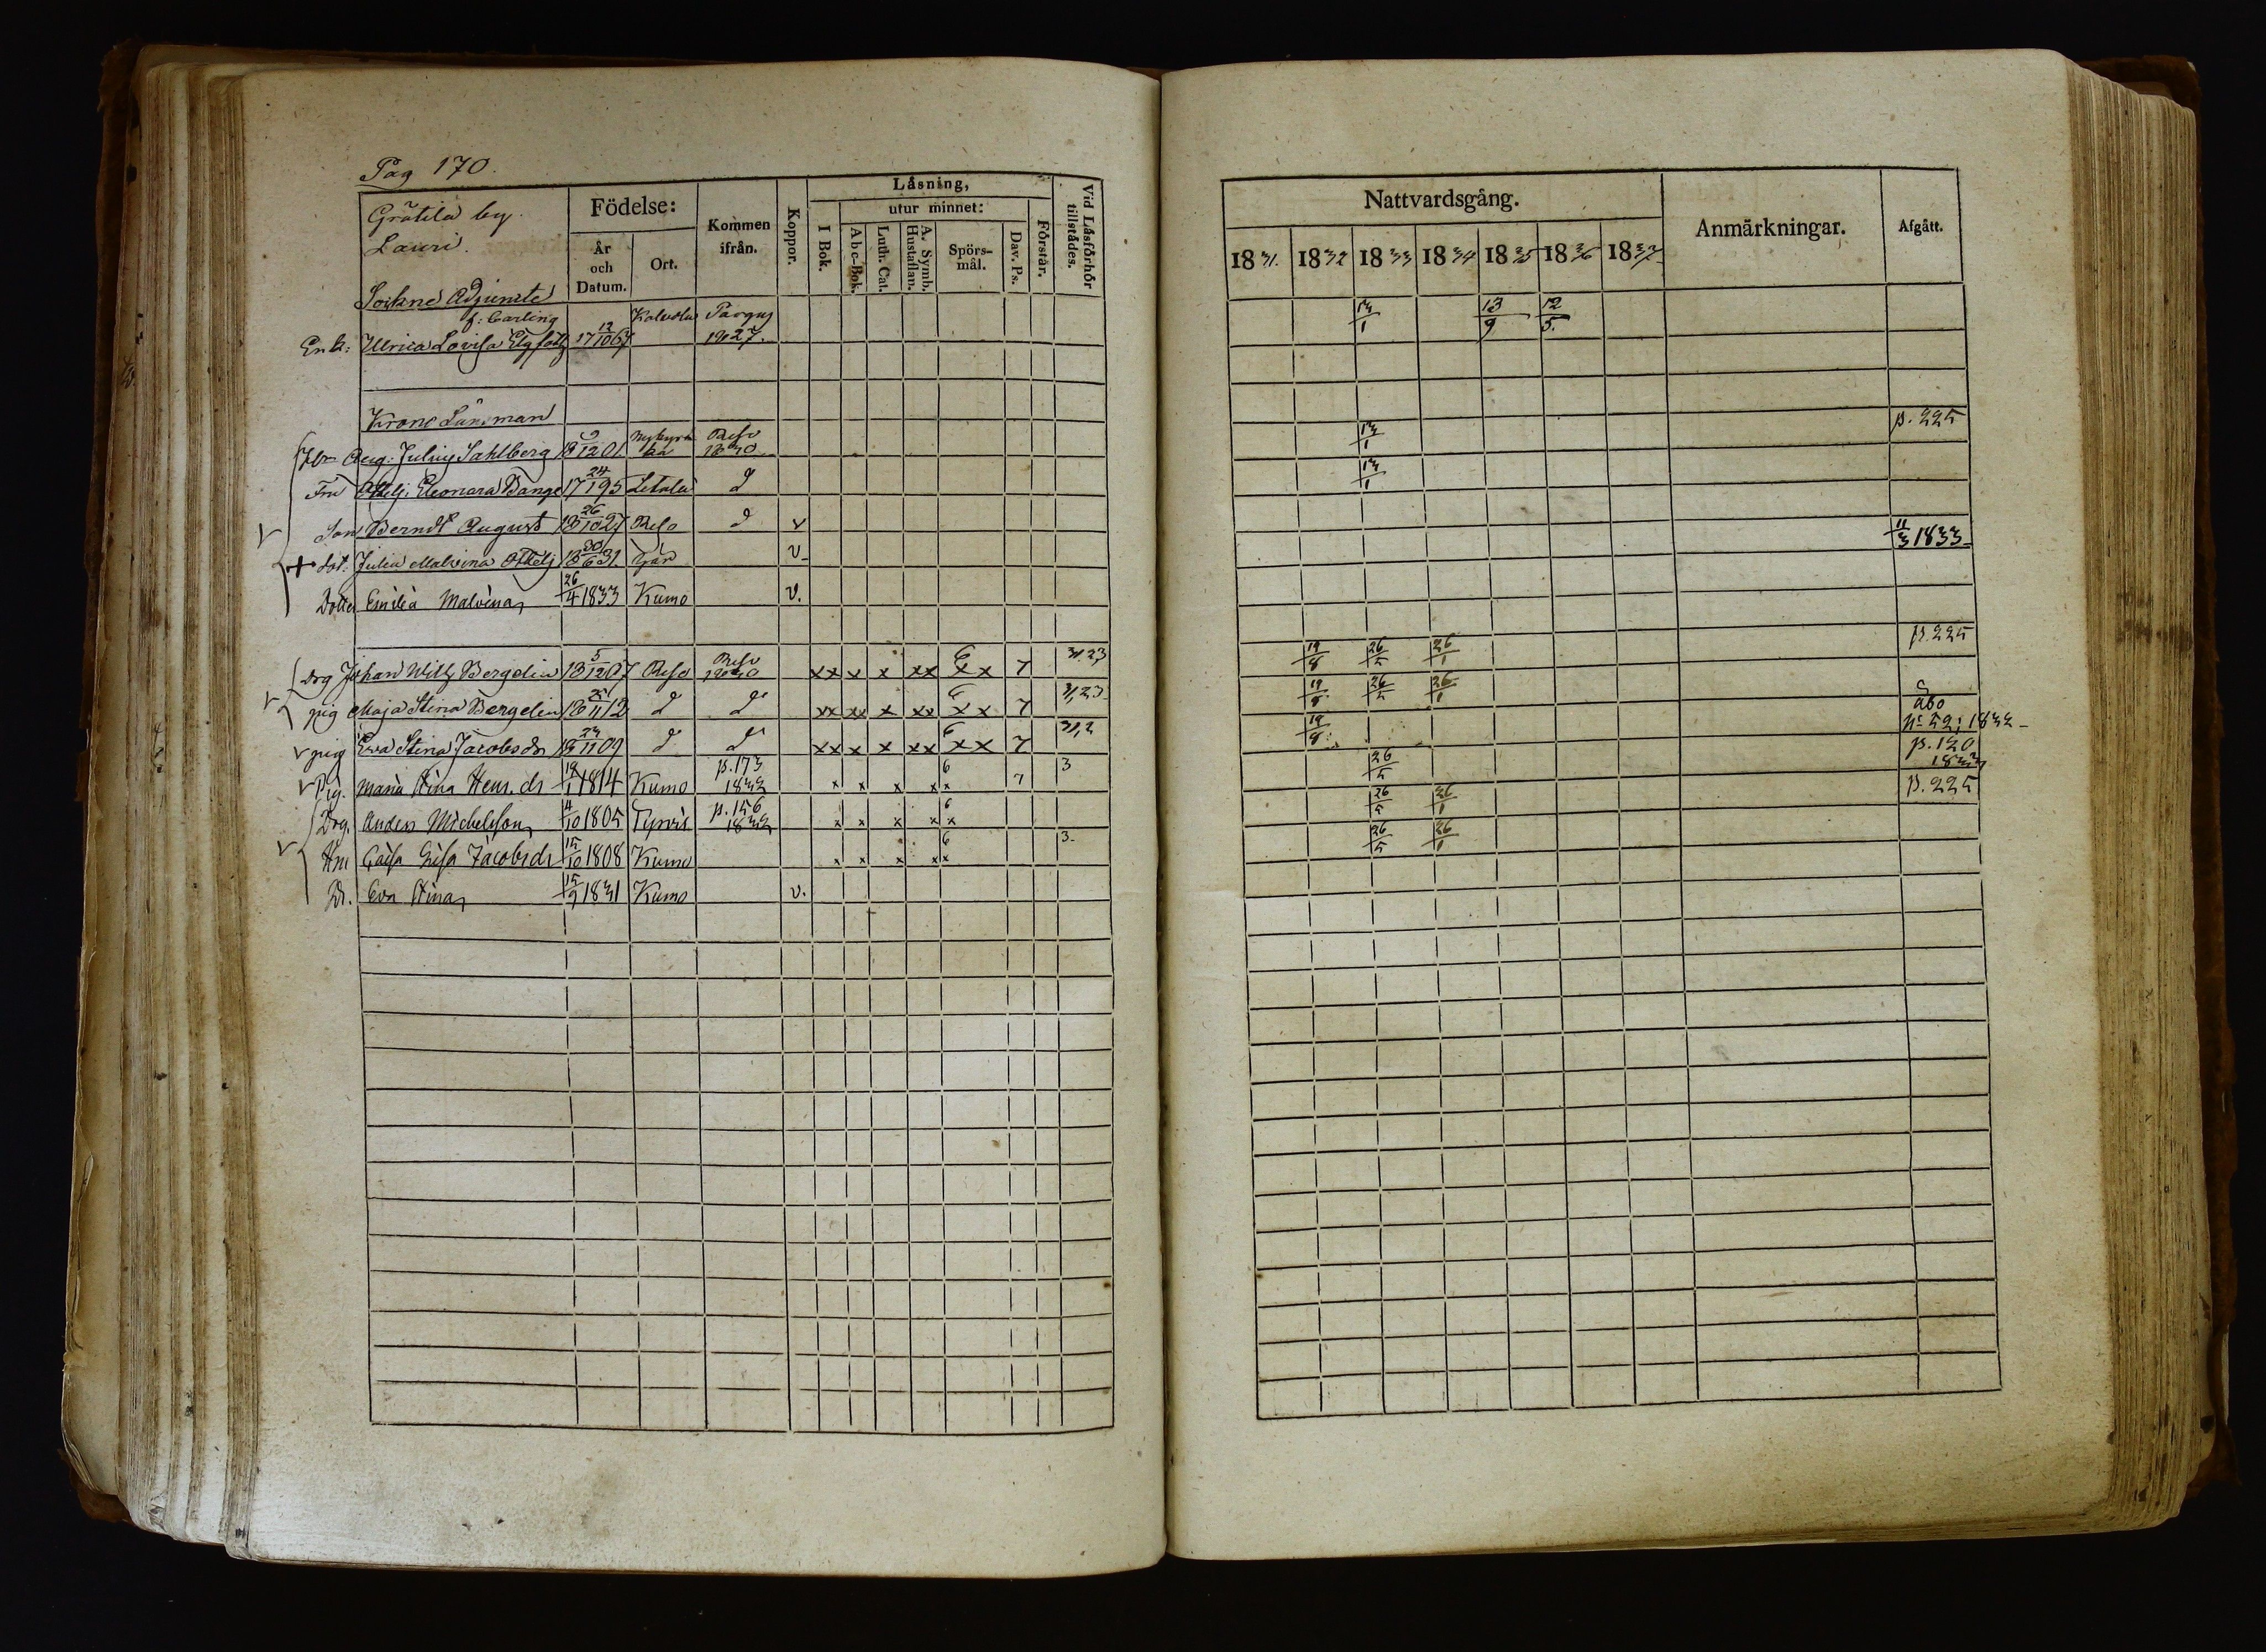 Pag 170.
Gråtila by.
Lauri.
Födelse:
År och Datum.
Ort.
Kommen ifrån.
Koppor.
Låsning,
I Bok.
utur minnet:
Abc-Bok.
Luth. Cat.
A. Symb. Hustaflan.
Spörs-mål.
Dav. Ps.
Förstår.
Vid Låsförhör tillstådes.
Nattvardsgång.
1831. 1832 1833 1834 1835 1836 1837
Anmärkningar.
Afgått.
Sockne Adjuncte
f: Carling Kalvola Pargas 13/1 13/9 12/5.
Enk: Ulrica Lovisa 17 12/10 67 1827.
Krono Länsman
Hr Aug: Julius Sahlberg 18 9/12 01 Nykyrka Reso 1830 13/1 p. 225
Fru Othelj: Eleonara Bange 17 24/1 95 Letala d 13/1
Son Berndt August 18 26/10 27 Reso d v
+ dot. Julia Malvina Othelj 18 30/6 31. här v 11/3 1833
Dotter Emilia Malvina 26/4 1833 Kumo v.
Drg Johan Wilh Bergelin 18 5/12 07 Reso Reso 1830 xx x x xx 6 xx 7 31.23 19/8 26/5 26/1 p. 225
pig Maja Stina Bergelin 18 25/11 12 d d xx xx x xx 6 xx 7 31,23 19/8 26/5 26/1
pig Eva Stina Jacobsdr 18 23/11 09 d d xx x x xx 6 xx 7 31,2 19/8 Åbo
Pig. Maria Stina Henr. dr 18/1 1814 Kumo p. 173 1832 x x x xx 6 7 3 26/5 p. 120 1833
Drg. Anders Michelsson 4/10 1805 Tyrvis p. 156 1832 x x x xx 6 26/5 26/1 p. 225
Hu Caisa Lisa Jacobsdr 15/10 1808 Kumo x x x xx 6 3. 26/5 26/1
Dr. Eva Stina 15/9 1831 Kumo v.